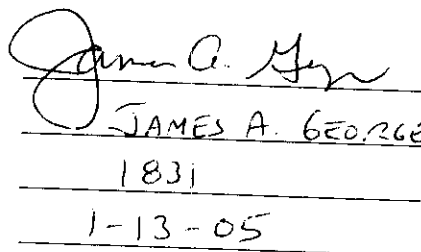 James A. George
JAMES A. GEORGE
1831
1-13-05